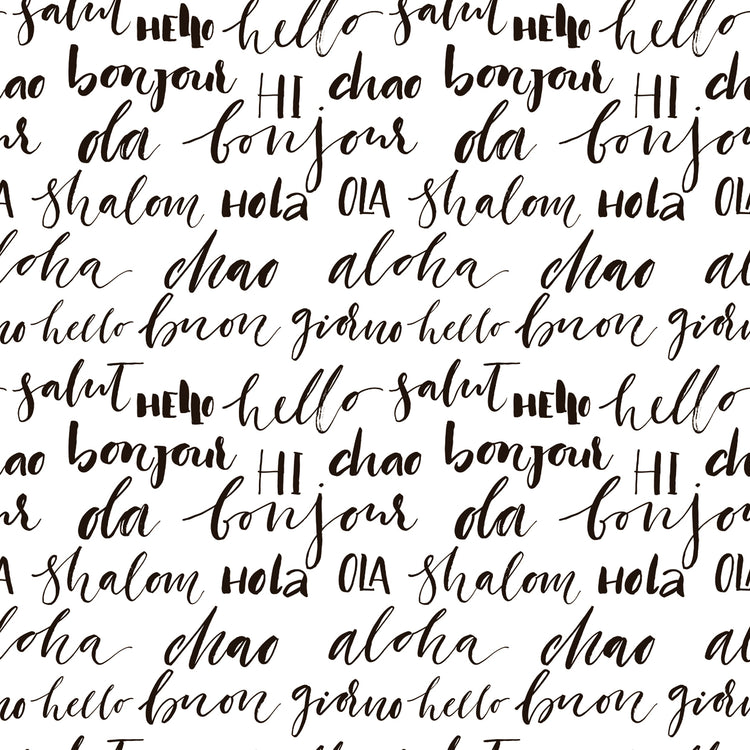 salut HELLO hello salut HELLO hello
ao bonjour HI chao bonjour HI ch
ur ola bonjour ola bonjo
A shalom Hola OLA shalom Hola OL
loha chao aloha chao al
no hello buon giorno hello buon giorn
salut HELLO hello salut HELLO hello
ao bonjour HI chao bonjour HI ch
ur ola bonjour ola bonjo
A shalom Hola OLA shalom Hola OL
loha chao aloha chao al
no hello buon giorno hello buon giorn